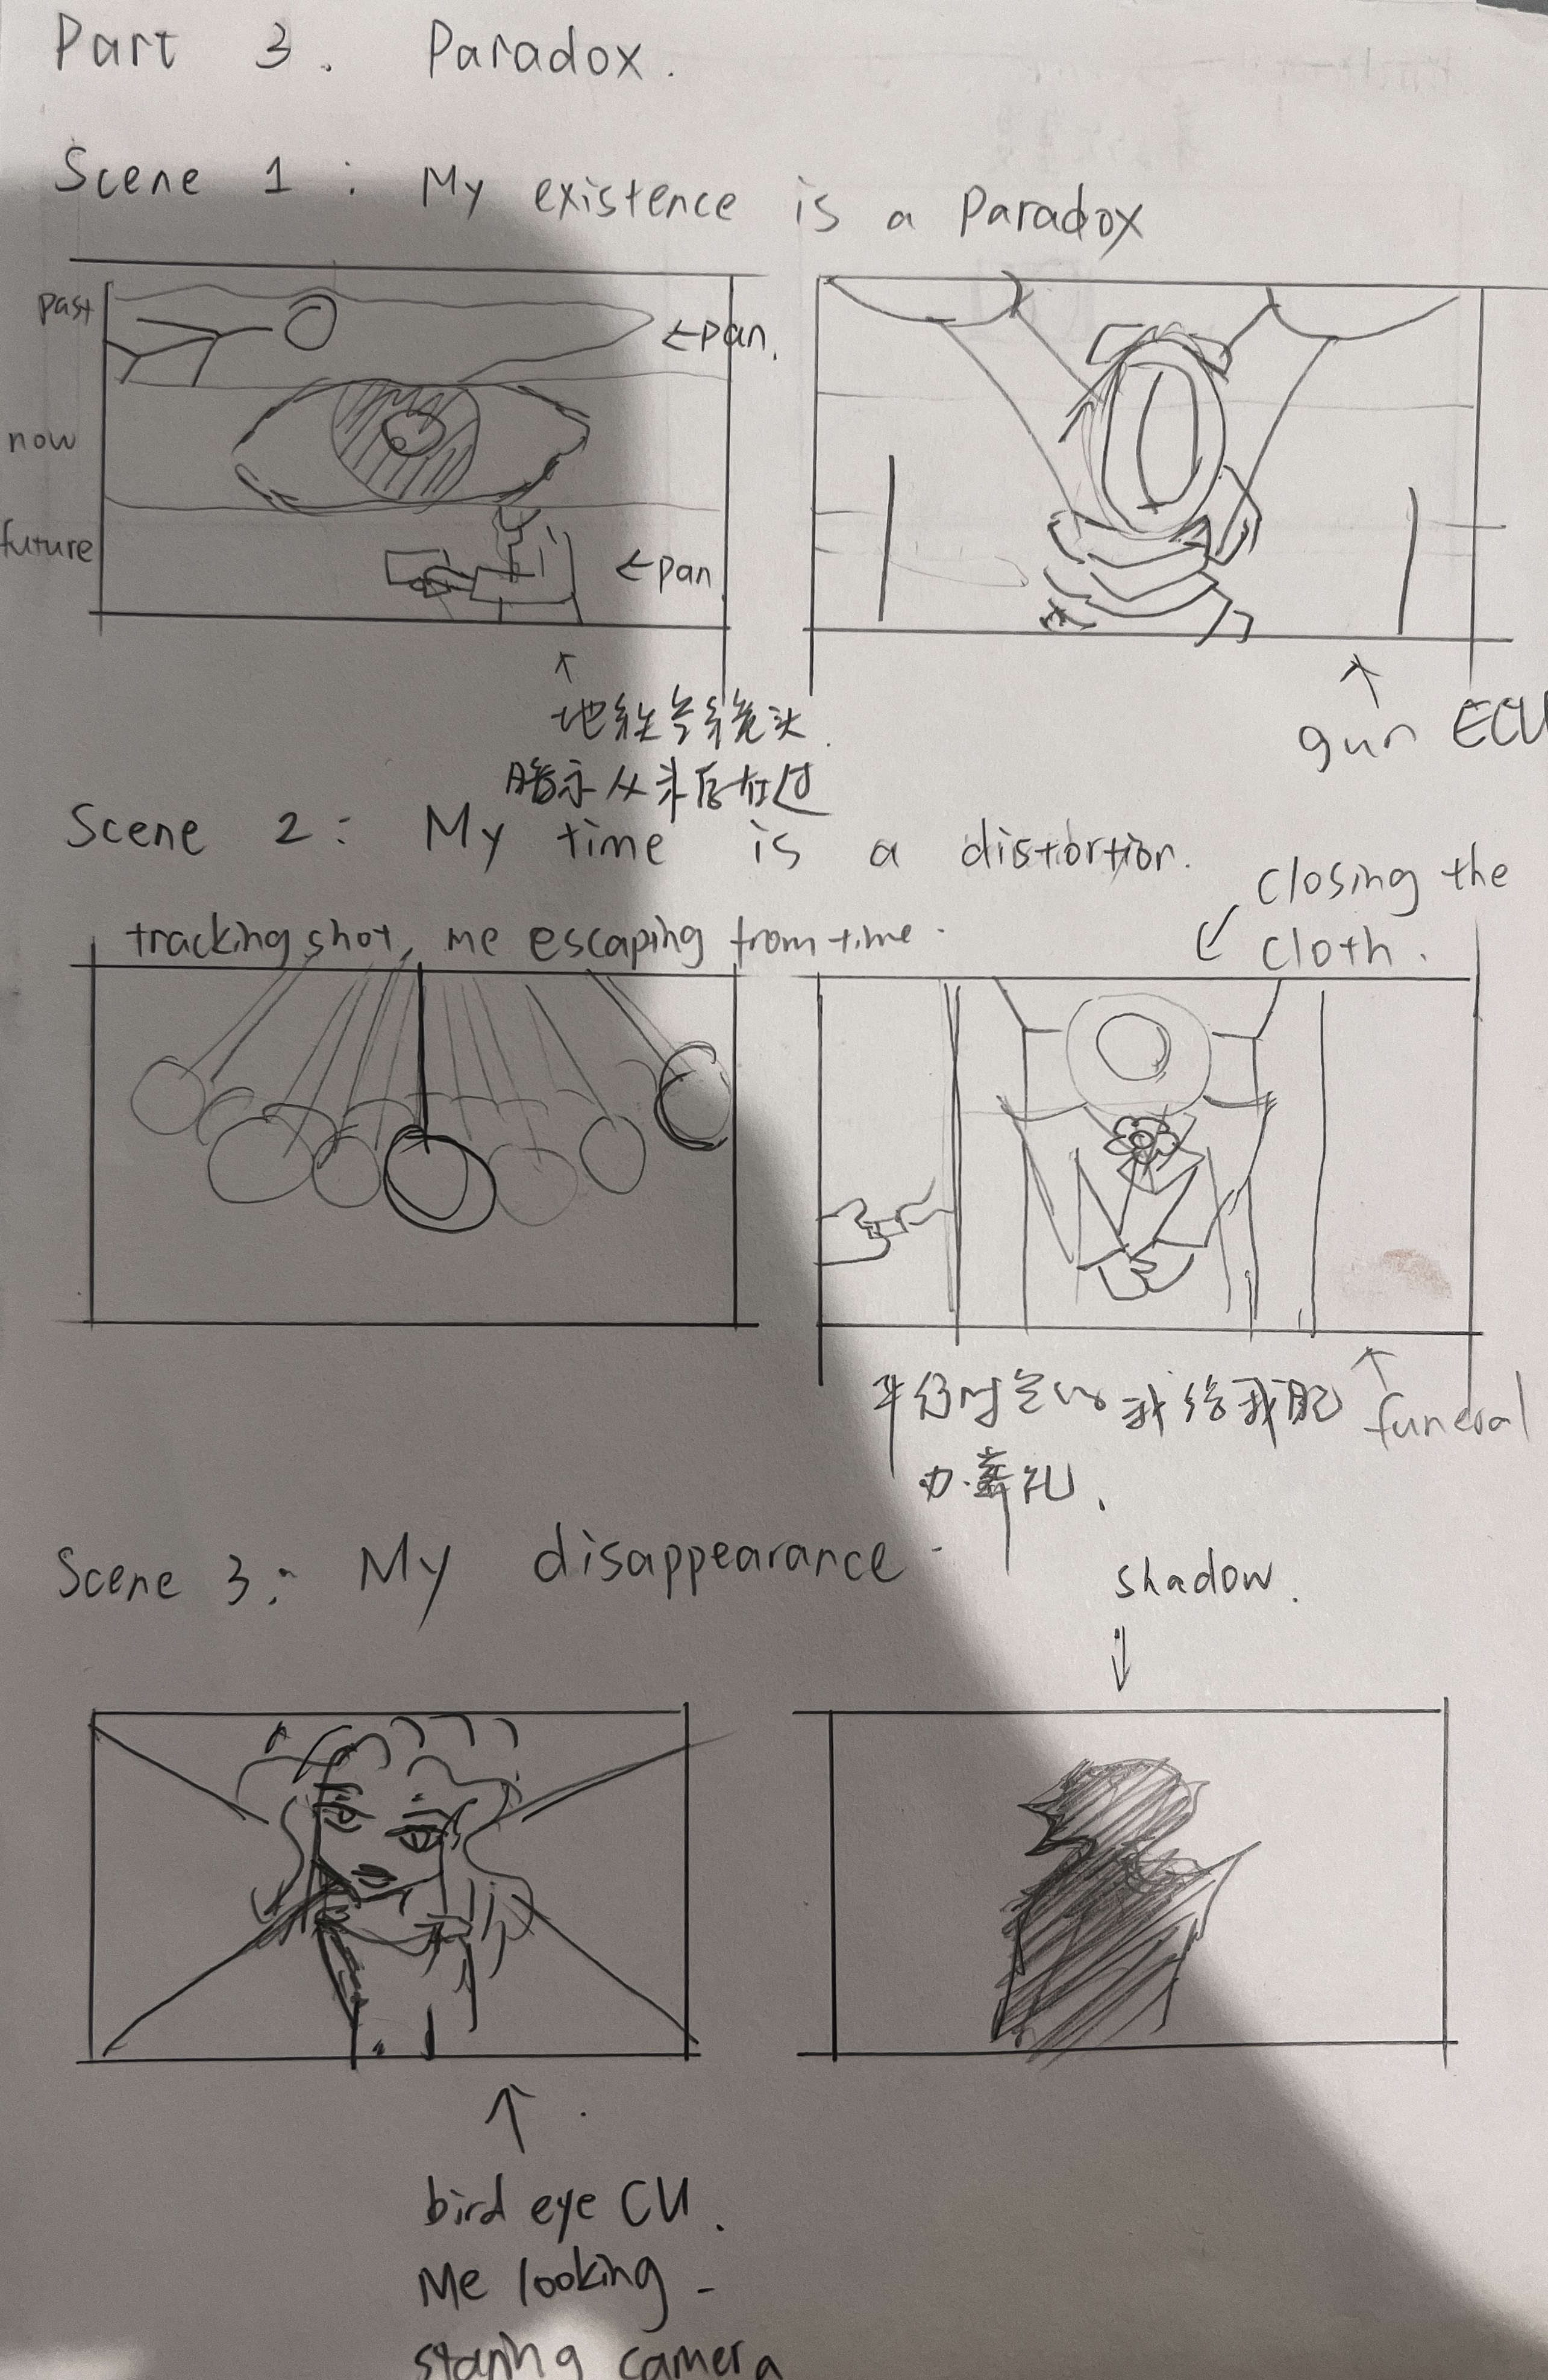 Part 3. Paradox.
Scene 1: My existence is a Paradox
past
←pan.
now
future
←pan
镜头.
暗示从头后过
gun ECU
Scene 2: My time is a distortion.
closing the
cloth.
tracking shot, me escaping from time.
平行时空的我给我
办葬礼.
funeral
Scene 3: My disappearance.
shadow.
bird eye CU.
Me looking -
staring camera